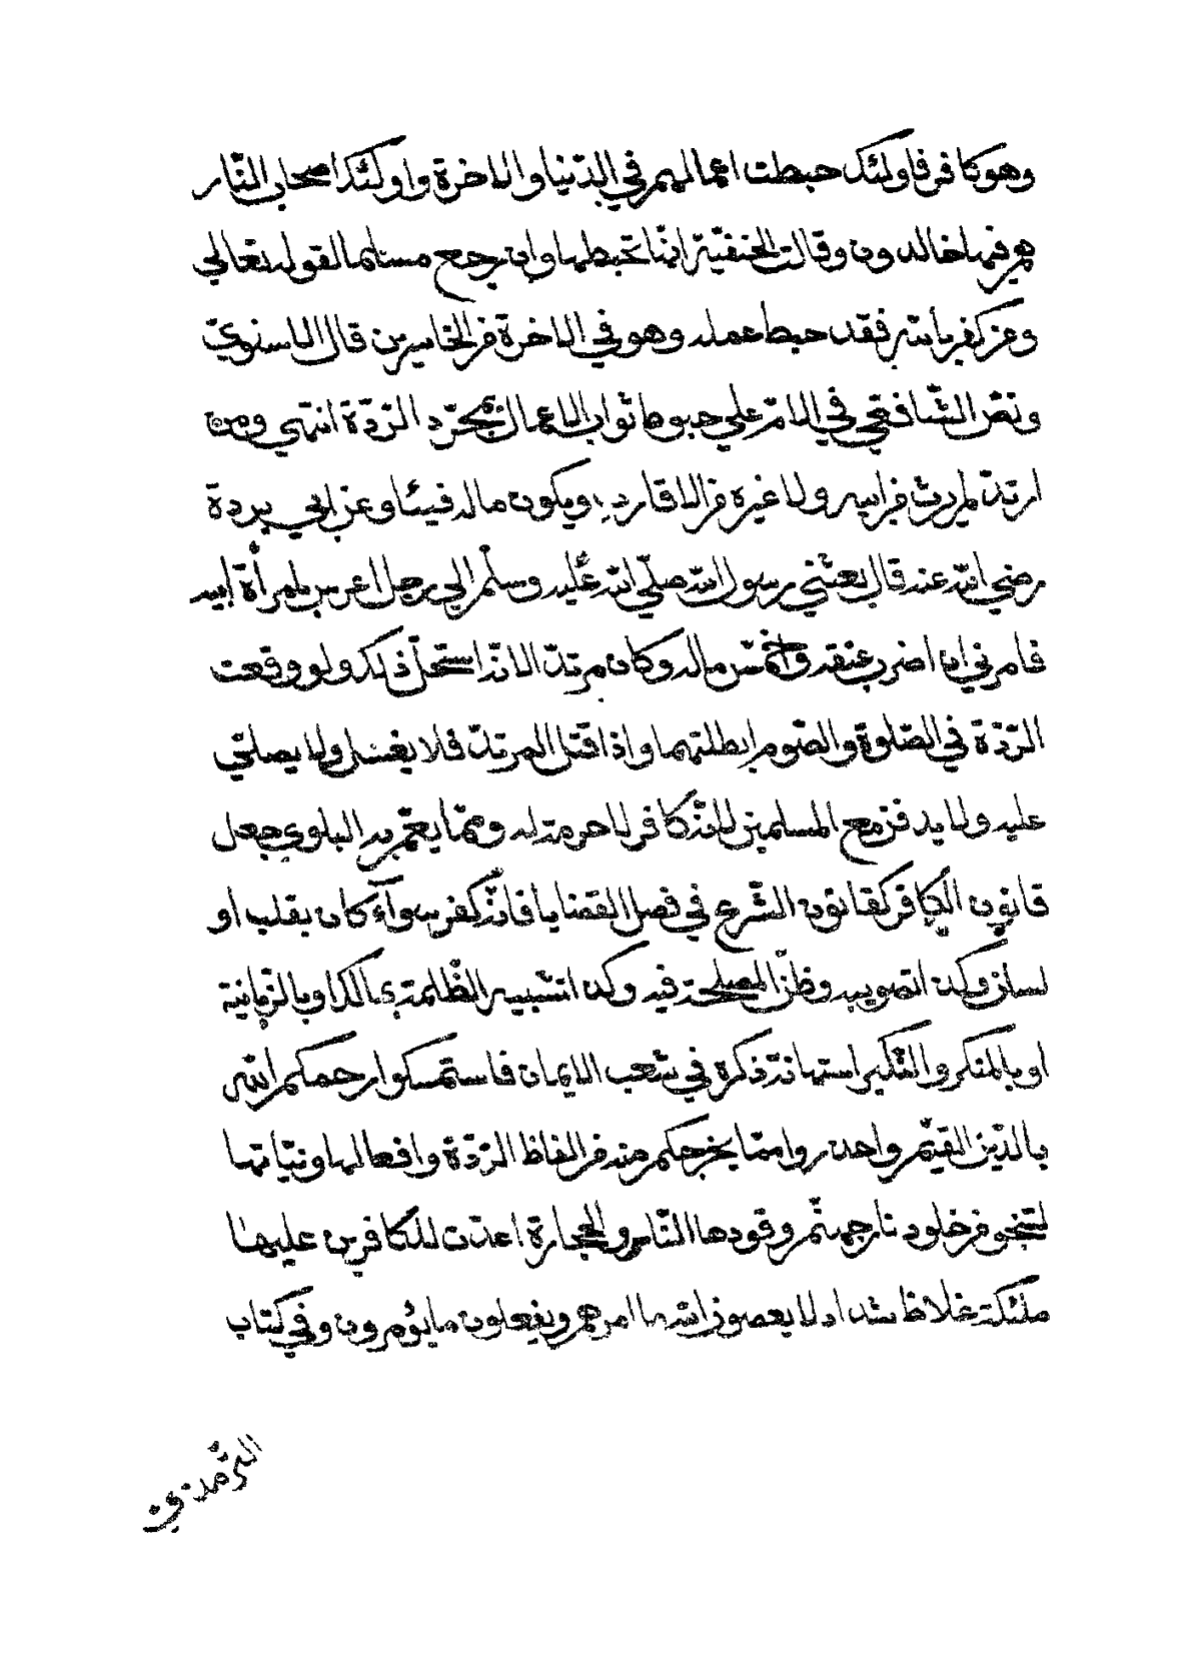 وهو كافر فاولئك حبطت اعمالهم في الدّنيا والاخرة واولئك اصحاب النّار
هم فيها خالدون وقالت الحنفيّة انّما تحبطها وان رجع مسلما لقوله تعالي
ومن كفر بالله فقد حبط عمله وهو في الاخرة من الخاسرين قال الاسنويّ
ونصّ الشّافعي في الامّ علي حبوط ثواب الاعمال بمجرّد الرّدّة انتهي ومن
ارتدّ لم يرث من ابيه ولا غيره من الاقارب ويكون ماله فيئا وعن ابي بردة
رضي الله عنه قال بعثني رسول الله صلّي الله عليه وسلّم الي رجل اعرس بامرأة ابيه
فامرني ان اضرب عنقه واخمّس ماله وكان مرتدّا لانّه استحلّ ذلك ولو وقعت
الرّدّة في الصّلوة والصّوم ابطلتهما واذا قتل المرتدّ فلا يغسل ولا يصلّي
عليه ولا يدفن مع المسلمين لانّه كافر لا حرمة له وممّا يعمّ به البلوي جعل
قانون الكافر كقانون الشّرع في فصل القضايا فانّه كفر سوآء كان بقلب او
لسان وكذا تصويبه وظنّ المصلحة فيه وكذا تشبيه الظّلمة بمالك او بالزّبانية
او بالمنكر والنّكير استهانة ذكره في شعب الايمان فاستمسكوا رحمكم الله
بالدّين القيّم واحذروا ممّا يخرجكم منه من الفاظ الرّدّة وافعالها ونيّاتها
لتنجو من خلود نار جهنّم وقودها النّاس والحجارة اعدّت للكافرين عليها
ملئكة غلاظ شداد لا يعصون الله ما امرهم ويفعلون ما يؤمرون وفي كتاب
التّرمذيّ